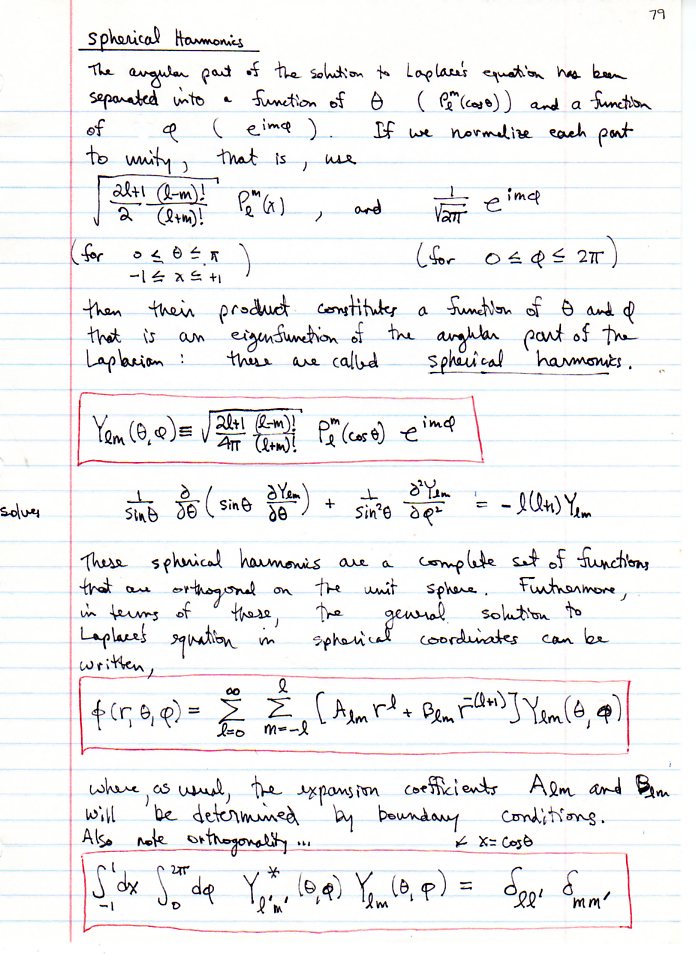 79
Spherical Harmonics
The angular part of the solution to Laplace's equation has been
separated into a function of θ ( Pₗᵐ(cosθ)) and a function
of φ ( e^{imφ} ). If we normalize each part
to unity, that is, use
√( (2l+1)/2 (l-m)!/(l+m)! ) Pₗᵐ(x) , and 1/√(2π) e^{imφ}
(for 0 ≤ θ ≤ π (for 0 ≤ φ ≤ 2π)
-1 ≤ x ≤ +1 )
then their product constitutes a function of θ and φ
that is an eigenfunction of the angular part of the
Laplacian : these are called spherical harmonics.
Yₗₘ(θ,φ) ≡ √( (2l+1)/4π (l-m)!/(l+m)! ) Pₗᵐ(cosθ) e^{imφ}
solves 1/sinθ ∂/∂θ ( sinθ ∂Yₗₘ/∂θ ) + 1/sin²θ ∂²Yₗₘ/∂φ² = - l(l+1) Yₗₘ
These spherical harmonics are a complete set of functions
that are orthogonal on the unit sphere. Furthermore,
in terms of these, the general solution to
Laplace's equation in spherical coordinates can be
written,
ϕ(r,θ,φ) = ∑_{l=0}^{∞} ∑_{m=-l}^{l} [ Aₗₘ r^l + Bₗₘ r^{-(l+1)} ] Yₗₘ(θ,φ)
where, as usual, the expansion coefficients Aₗₘ and Bₗₘ
will be determined by boundary conditions.
Also note orthogonality ... ↙ x=cosθ
∫_{-1}^{1} dx ∫_{0}^{2π} dφ Y*_{l'm'} (θ,φ) Yₗₘ (θ,φ) = δ_{ll'} δ_{mm'}